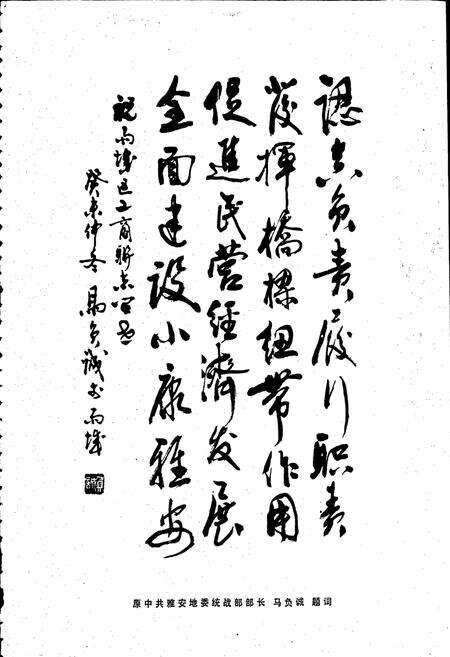 認真负责履行职责
發揮橋樑纽带作用
促進民营经濟发展
全面建设小康雅安
祝雨城区工商联志
癸未仲冬 馬负诚书雨城
原中共雅安地委统战部部长 马负诚 题词